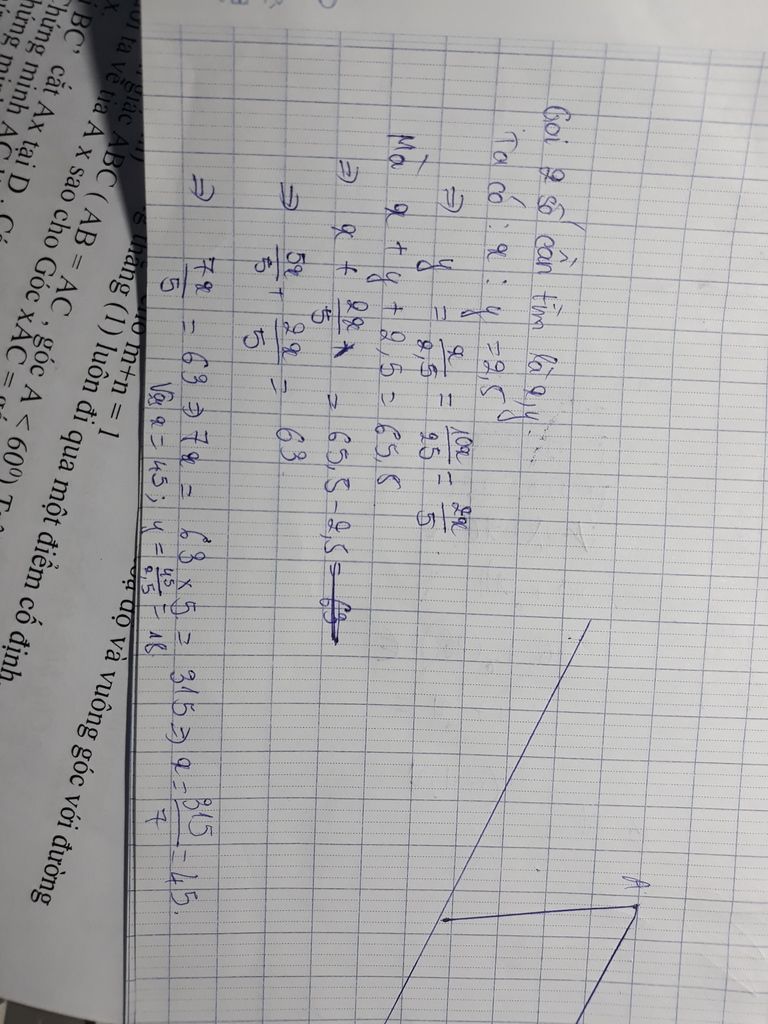 Gọi 2 số cần tìm là x, y.
Ta có : x : y = 2,5
⇒ y = x/2,5 = 10x/25 = 2x/5
Mà x + y + 2,5 = 65,5
⇒ x + 2x/5 = 65,5 - 2,5
⇒ 5x/5 + 2x/5 = 63
⇒ 7x/5 = 63 ⇒ 7x = 63 × 5 = 315 ⇒ x = 315/7 = 45.
Vậy x = 45; y = 45/2,5 = 18.
A
m+n = 1
thẳng (1) luôn đi qua một điểm cố định
độ và vuông góc với đường
giác ABC ( AB = AC , góc A < 60⁰)
ta vẽ tia A x sao cho Góc xAC =
cắt Ax tại D
hứng minh